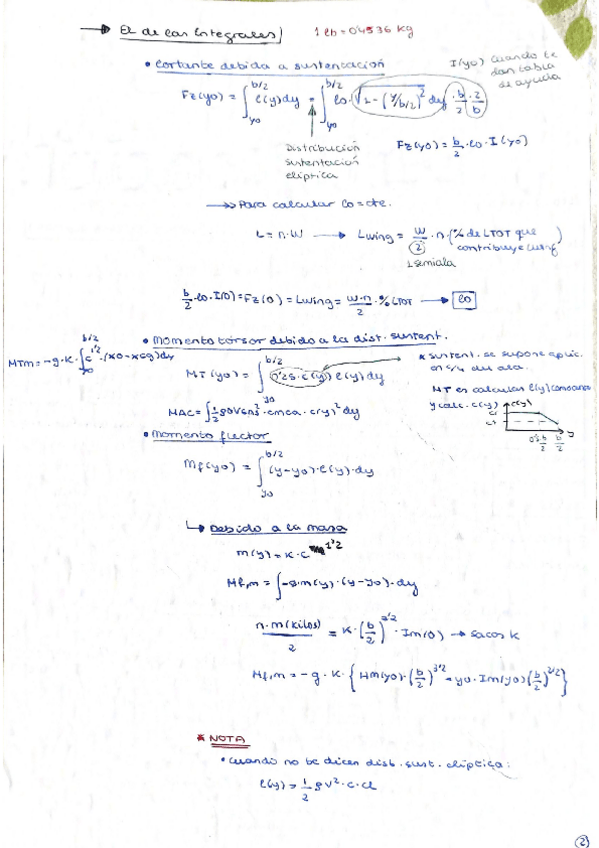 → El de las Integrales
1 lb = 0'4536 kg
• Cortante debida a sustentación
I(yo) cuando te
dan tabla
de ayuda
Fz(yo) = ∫_{yo}^{b/2} l(y)dy = ∫_{yo}^{b/2} lo·√(1-(y/b/2)²) dy · b/2 · 2/b
Distribución
sustentación
elíptica
Fz(yo) = b/2 · lo · I(yo)
→ Para calcular lo = cte.
L = n·W → Lwing = W/2 · n · (% de LTOT que
contribuye Lwing)
1 semiala
b/2 · lo · I(0) = Fz(0) = Lwing = W·n/2 · % LTOT → lo
• Momento torsor debido a la dist. sustent.
MTm = -g·K·∫_{yo}^{b/2} c^{1'2}·(xo-xcg)dy
MT(yo) = ∫_{yo}^{b/2} 0'25·c(y) l(y)dy
* sustent. se supone aplic.
en c/4 del ala.
MT es calcular l(y) como antes
y calc. c(y)
c(y)
cr
ct
y
b/2
b/2
MAC = ∫ 1/2 ρ V² · cmca · c(y)² dy
• Momento flector
Mf(yo) = ∫_{yo}^{b/2} (y-yo)·l(y)·dy
↳ Debido a la masa
m(y) = K·c^{1'2}
Mf,m = ∫-g·m(y)·(y-yo)·dy
n·m(kilos)/2 = K·(b/2)^{2'2} · Im(0) → sacos K
Mf,m = -g·K·{Hm(yo)·(b/2)^{3'2} - yo·Im(yo)(b/2)^{2'2}}
* NOTA
• Cuando no te dicen dist. sust. elíptica:
l(y) = 1/2 ρ v²·c·cl
2